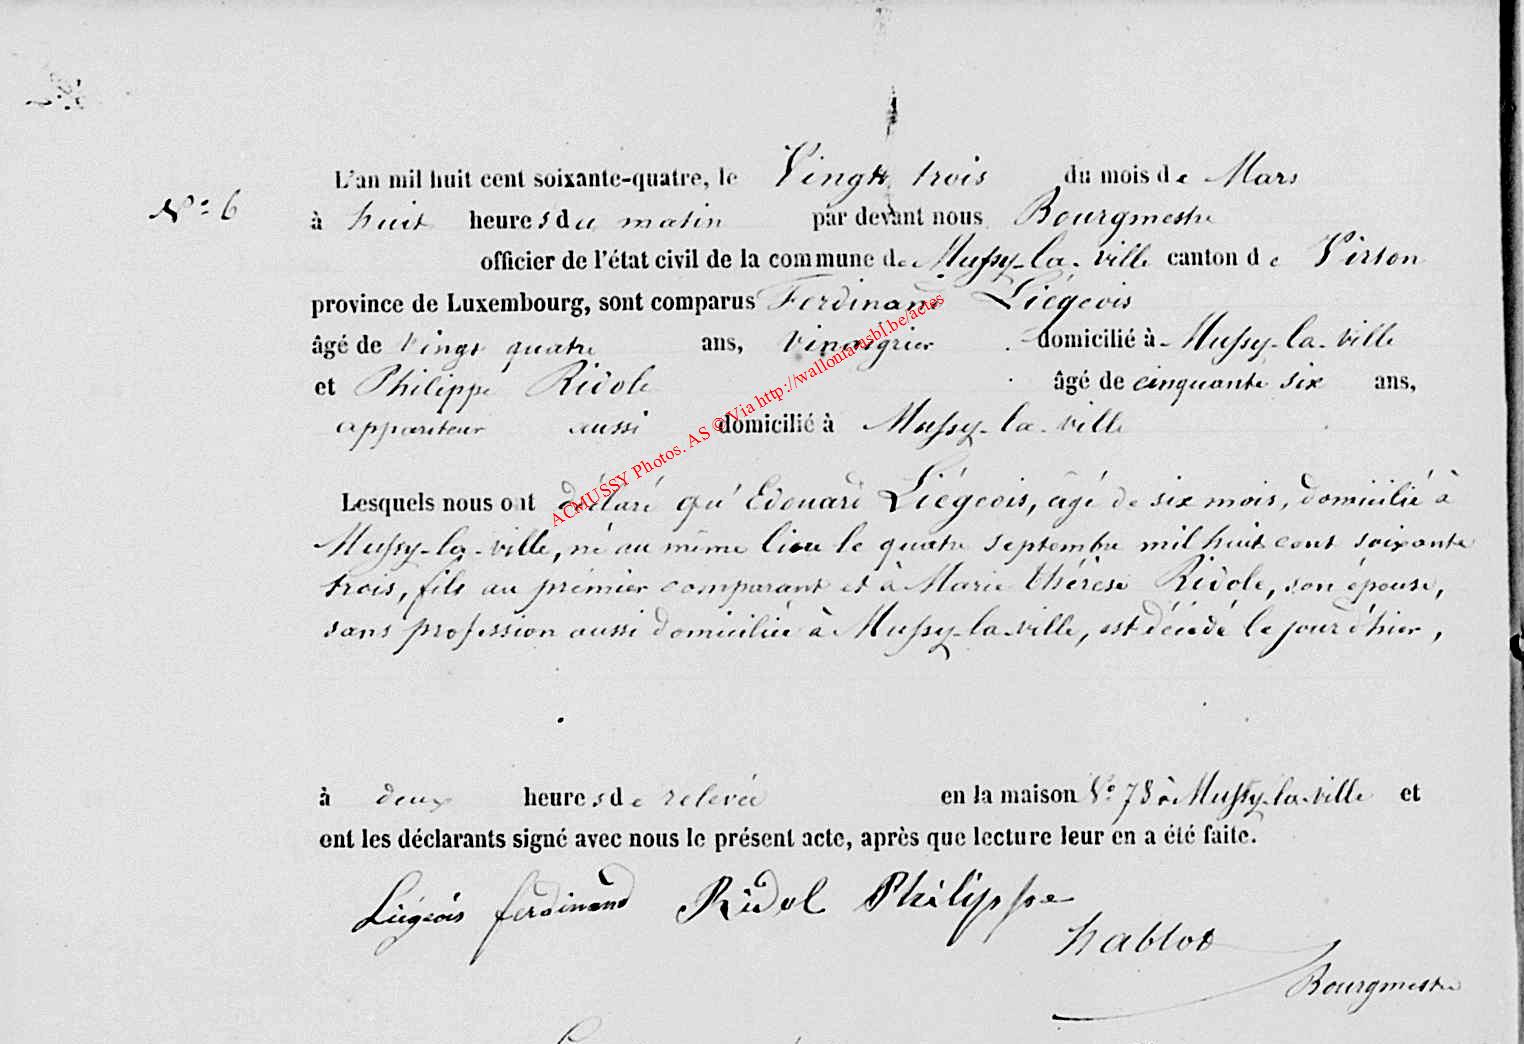 L'an mil huit cent soixante-quatre, le Vingt trois du mois de Mars
N° 6
à huit heures du matin par devant nous Bourgmestre
officier de l'état civil de la commune de Mussy-la-ville canton de Virton
province de Luxembourg, sont comparus Ferdinand Liégeois
âgé de vingt quatre ans, vinaigrier domicilié à Mussy-la-ville
et Philippe Ridole âgé de cinquante six ans,
appariteur aussi domicilié à Mussy-la-ville
Lesquels nous ont déclaré qu'Edouard Liégeois, âgé de six mois, domicilié à
Mussy-la-ville, né au même lieu le quatre septembre mil huit cent soixante
trois, fils au prémier comparant et à Marie Thérèse Ridole, son épouse,
sans profession aussi domiciliée à Mussy-la-ville, est décédé le jour d'hier,
à deux heures de relevée en la maison N° 78 à Mussy-la-ville et
ont les déclarants signé avec nous le présent acte, après que lecture leur en a été faite.
Liégeois ferdinand Ridol Philippe
hablot
Bourgmestre
ACMUSSY Photos. AS © Via http://wallonia-asbl.be/actes